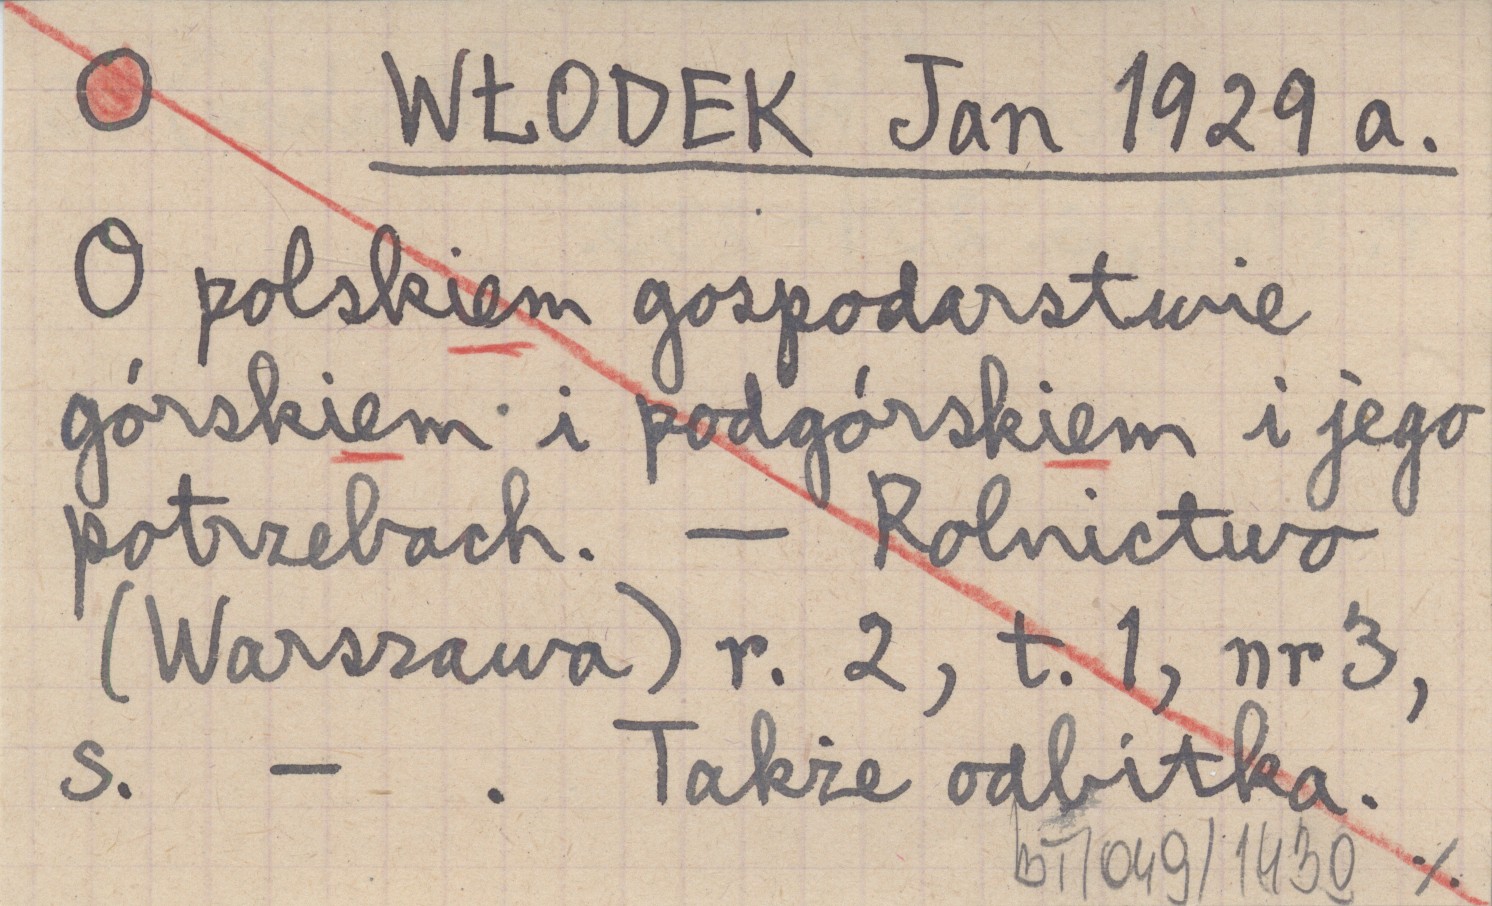 O WŁODEK Jan 1929 a.
O polskiem gospodarstwie
górskiem i podgórskiem i jego
potrzebach. — Rolnictwo
(Warszawa) r. 2, t. 1, nr 3,
s. — . Także odbitka.
BT/049/1430 ·/.